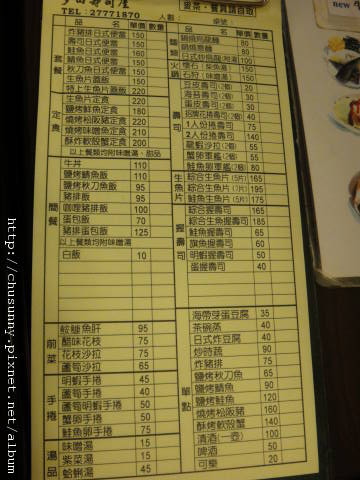 TEL：27771870
人數： 桌號
new
品名 單價 數量
套餐
炸豬排日式便當 150
壽司日式便當 150
鮭魚日式便當 160
鯖魚日式便當 150
秋刀魚日式便當 150
生魚片蓋飯 150
特上生魚片蓋飯 220
定食
生魚片定食 220
鹽烤鮭魚定食 210
燒烤松阪豬定食 220
燒烤味噌魚定食 210
酥炸軟殼蟹定食 200
以上餐類均附味噌湯、甜品
簡餐
牛丼 110
鹽烤鯖魚飯 110
鹽烤秋刀魚飯 95
豬排飯 95
咖哩豬排飯 100
蛋包飯 70
豬排蛋包飯 125
以上餐類均附味噌湯
白飯 10
前菜
鮟鱇魚肝 95
醋味花枝 75
花枝沙拉 75
蘆筍沙拉 65
手捲
明蝦手捲 45
蘆筍手捲 40
蘆筍明蝦手捲 50
蟹卵手捲 50
鮭魚卵手捲 75
湯品
味噌湯 15
紫菜湯 15
蛤蜊湯 45
品名 單價 數量
鍋燒烏龍麵 80
鍋燒意麵 80
火鍋
壽司
豆皮壽司(2個) 20
海苔壽司(2個) 30
蛋皮壽司(2個) 30
招牌花捲壽司(2個) 40
1人份捲壽司 75
2人份捲壽司 140
龍蝦沙拉(2個) 55
蟹卵軍艦(2個) 55
鮭魚卵軍艦(2個) 80
生魚片
綜合生魚片(5片) 165
綜合生魚片(7片) 175
握壽司
綜合握壽司 165
綜合握壽司 185
鮭魚握壽司 65
旗魚握壽司 60
明蝦握壽司 50
蛋握壽司 40
單點
海帶芽蛋豆腐 35
茶碗蒸 40
日式炸豆腐 40
炒時蔬 90
炸豬排 75
鹽烤秋刀魚 65
鹽烤鯖魚 90
鹽烤鮭魚 120
燒烤松阪豬 160
酥炸軟殼蟹 140
清酒(一壺) 100
啤酒 50
可樂 20
http://chusunny.pixnet.net/album